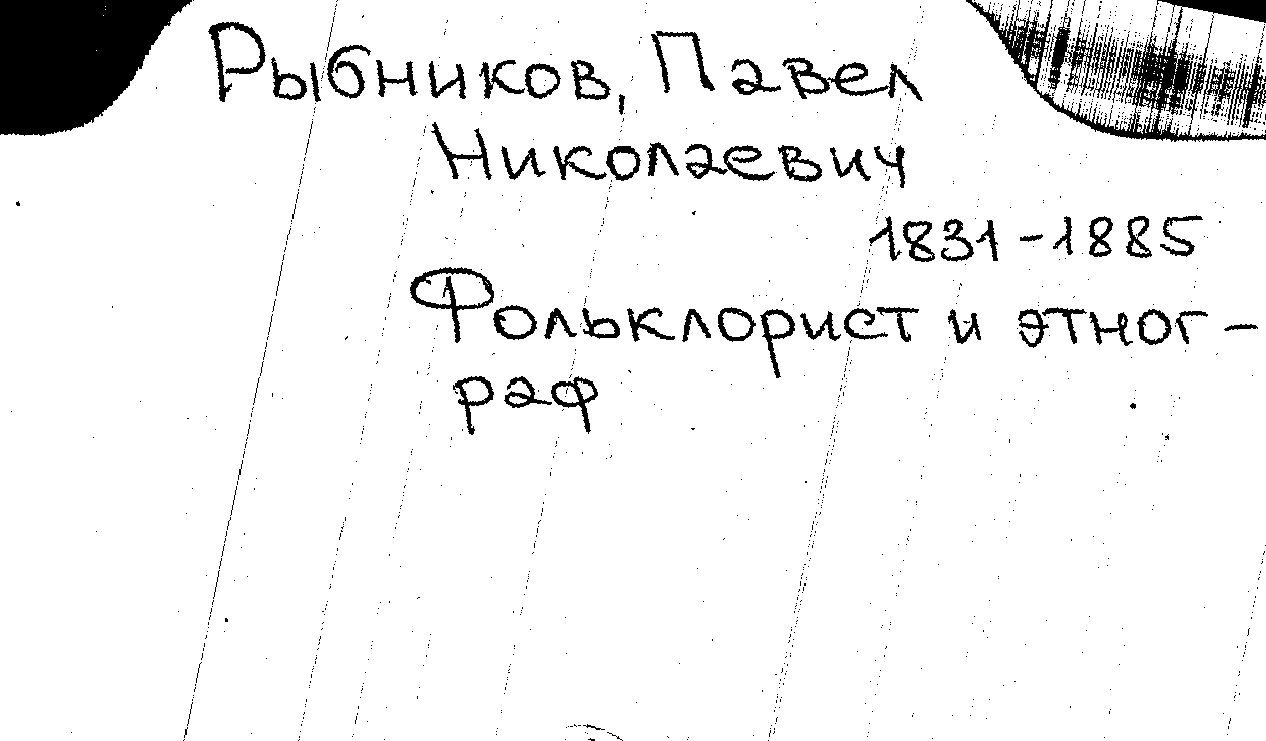 Рыбников, Павел
Николаевич
1831-1885
Фольклорист и этног-
раф